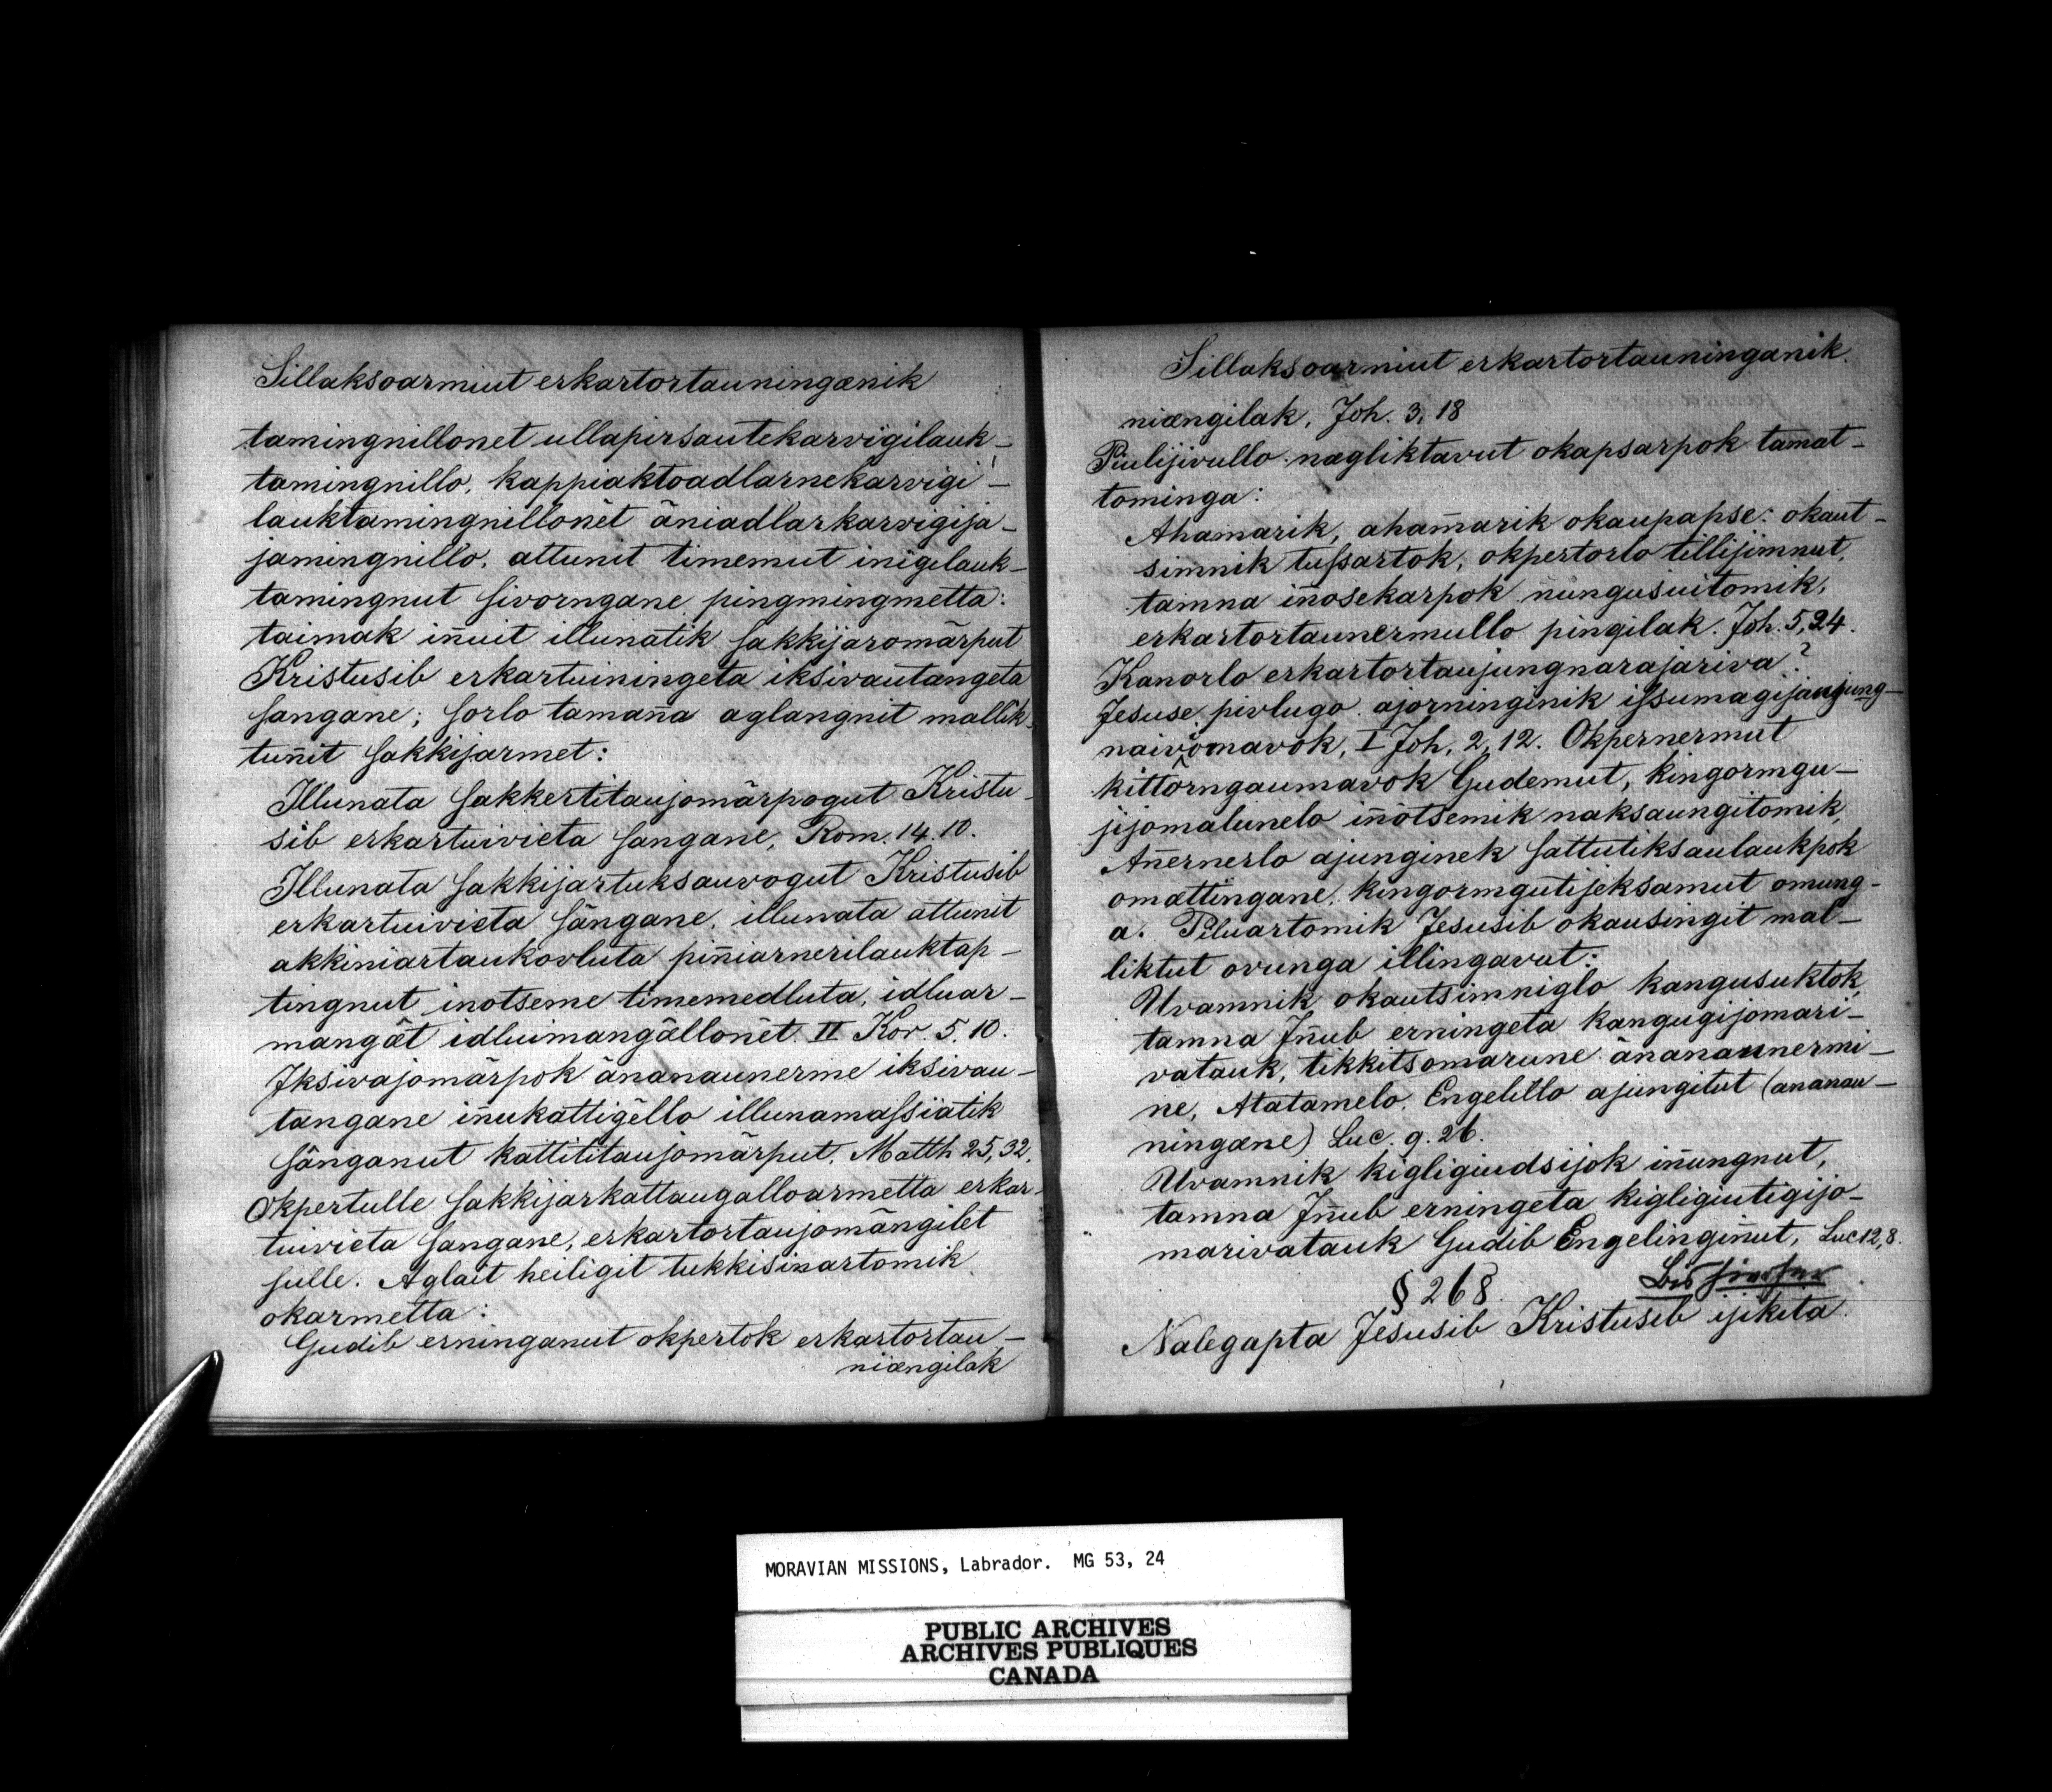 Sillaksoarmiut erkartortauninganik
tamingnillonet ullapirsautekarvigilauk-
tamingnillo, kappiaktoadlarnekarvigi-
lauktamingnillonēt āniadlarkarvigija-
jamingnillo, attunit timemut inigilauk-
tamingnut sivorngane pingmingmetta:
taimak iñuit illunatik sakkijaromārput
Kristusib erkartuiningeta iksivautangeta
sangane; sorlo tamaña aglangnit mallik-
tuñit sakkijarmet:
Illunata sakkertitaujomārpogut Kristu-
sib erkartuivieta sangane, Rom. 14. 10.
Illunata sakkijartuksauvogut Kristusib
erkartuivieta sāngane, illunata attunit
akkiniartaukovluta piñiarnerilauktap-
tingnut inotseme timemedluta, idluar-
mangāt idluimangāllonēt. II Kor. 5. 10.
Iksivajomārpok ānanaunerme iksivau-
tangane iñukattigēllo illunamassiatik
sānganut kattititaujomārput. Matth 25, 32.
Okpertulle sakkijarkattaugalloarmetta erkar-
tuivieta sangane, erkartortaujomāngilet
sulle. Aglait heiligit tukkisinartomik
okarmetta:
Gudib erninganut okpertok erkartortau-
niængilak
Sillaksoarmiut erkartortauninganik.
niængilak, Joh. 3, 18
Piulijivullo nagliktavut okapsarpok tamat-
tominga:
Ahamarik, ahamarik okaupapse: okaut-
simnik tussartok, okpertorlo tillijimnut,
tamna iñosekarpok nungusuitomik,
erkartortaunermullo pingilak. Joh. 5, 24.
Kanorlo erkartortaujungnarajariva?
Jesuse pivlugo ajorninginik issumagijaujung-
naivomavok, I Joh. 2, 12. Okpernermut
kittorngaumavok Gudemut, kingormgu-
jijomalunelo iñōtsemik naksaungitomik,
Añernerlo ajunginek sattutiksaulaukpok
omattingane, kingormgutijeksamut omung-
a. Piluartomik Jesusib okausingit mal-
liktut ovunga illingavut:
Uvamnik okautsimniglo kangusuktok,
tamna Iñub erningeta kangugijomari-
vatauk, tikkitsomarune ānanaunermi-
ne, Atatamelo, Engelillo ajungitut (ananau-
ningane) Luc. 9. 26.
Uvamnik kigligiudsijok iñungnut,
tamna Iñub erningeta kigligiutigijo-
marivatauk Gudib Engelingiñut, Luc 12, 8.
§ 268.
Nalegapta Jesusib Kristusib ijikita.
MORAVIAN MISSIONS, Labrador. MG 53, 24
PUBLIC ARCHIVES
ARCHIVES PUBLIQUES
CANADA